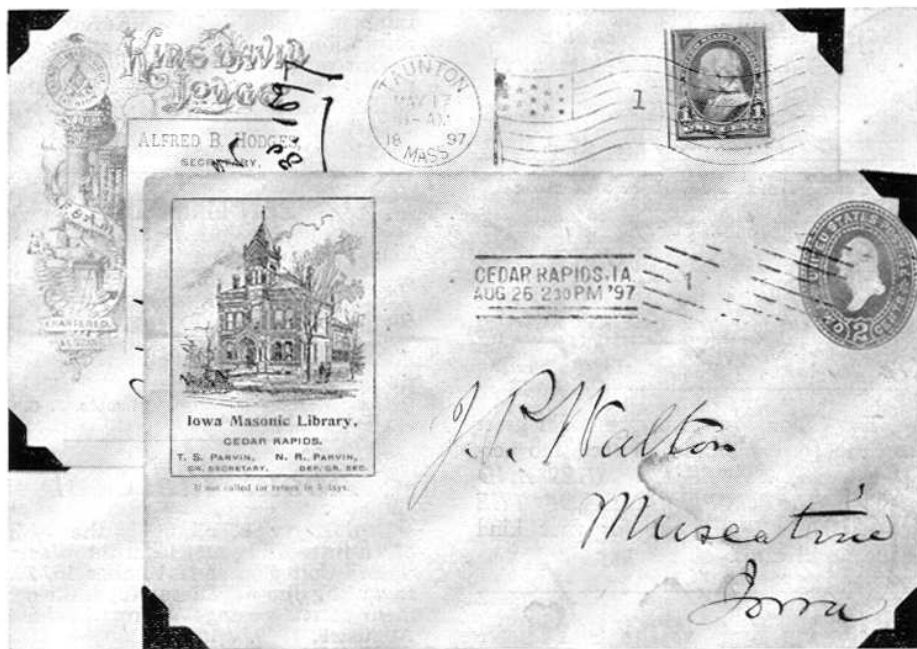 KING DAVID
LODGE
ALFRED B. HODGES,
SECRETARY.
A.F. & A.M.
CHARTERED
TAUNTON
MAY 17
AM
18 97
MASS
1
1
Iowa Masonic Library,
CEDAR RAPIDS.
T. S. PARVIN, N. R. PARVIN,
GR. SECRETARY. DEP. GR. SEC.
If not called for return in 5 days.
CEDAR RAPIDS. IA.
AUG 26 2 30 PM '97
1
UNITED STATES POSTAGE
TWO 2 CENTS
J. P. Walton
Muscatine
Iowa